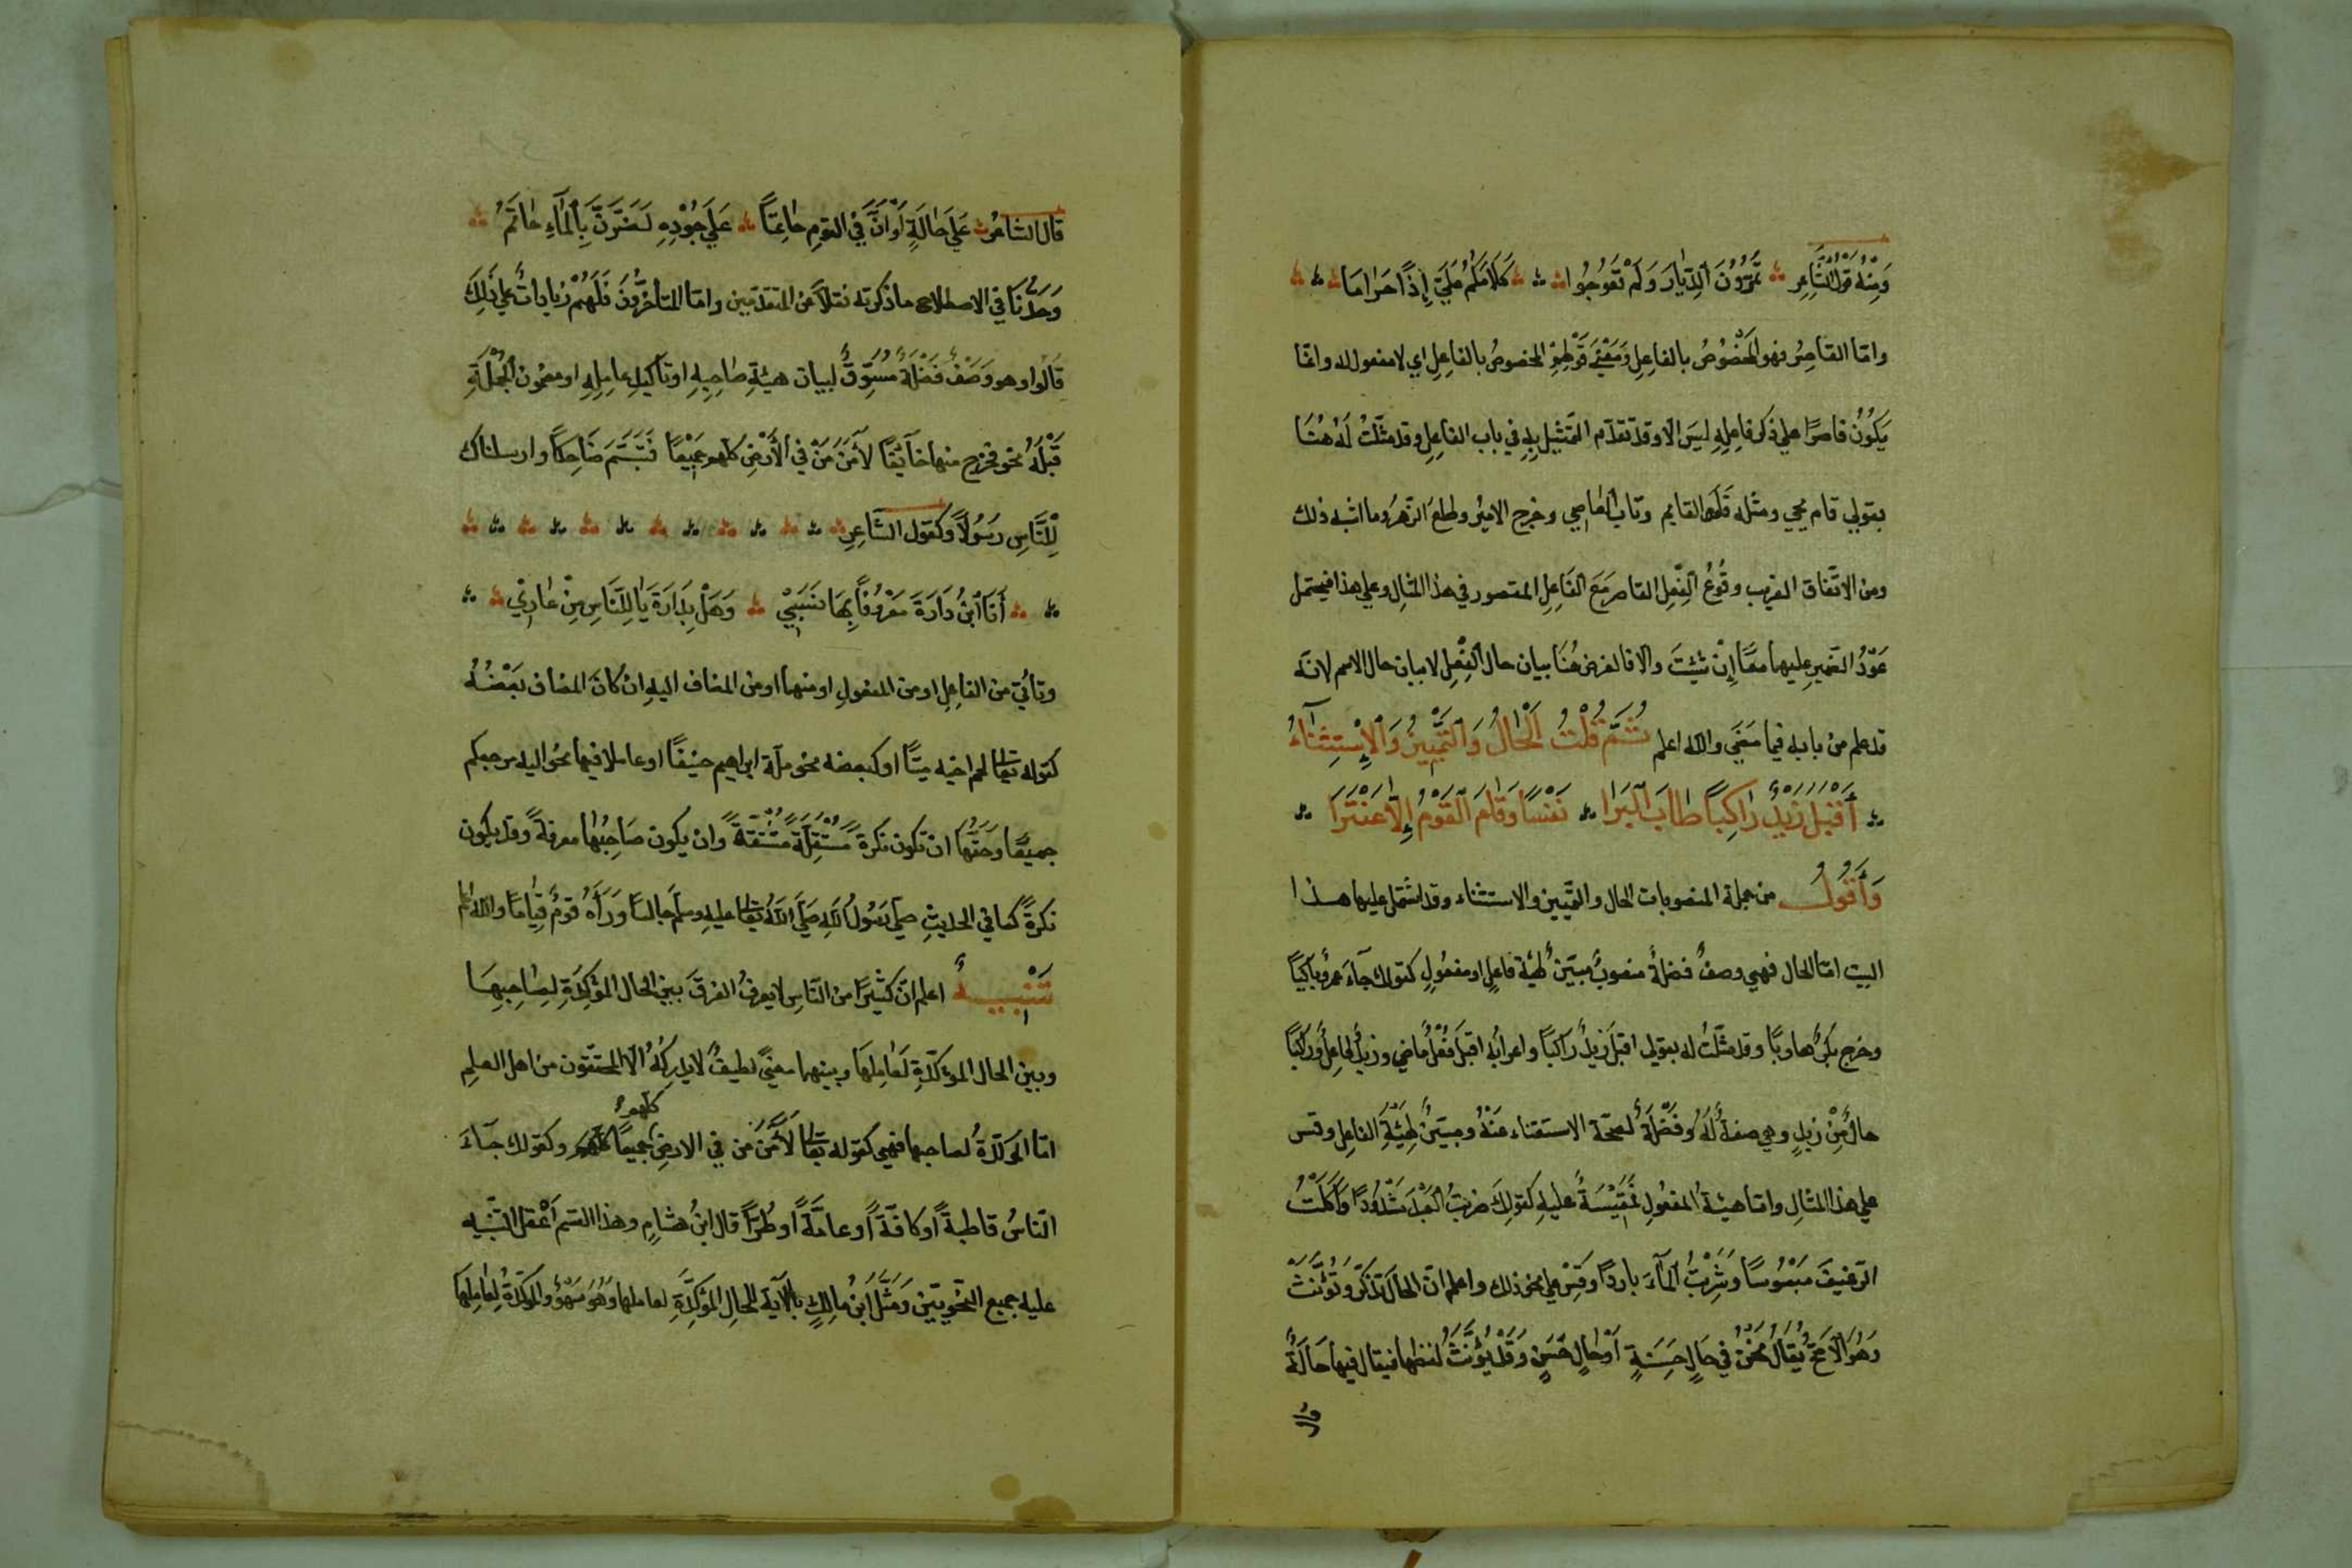 وَمِنْهُ قَوْلُ الشَّاعِرِ تَمُرُّونَ الدِّيَارَ وَلَمْ تَعُوجُوا كَلَامُكُمُ عَلَيَّ إِذًا حَرَامًا
وامّا القاصِرُ فهو المخصُوصُ بالفاعِلِ وَمَعْنَى قَوْلهِمْ المخصوصُ بالفاعِلِ اي لا مفعول له وانّما
يَكُونُ قاصرًا على ذكر فاعِلِهِ ليسَ الّا وقد تقدّم التمّثيل بِهِ في باب الفاعِلِ وقد مثّلتُ لَهُ هُنَا
بقولي قام يحي ومثله قَعَدَ القايم وتاب العاصي وخرج الاميرُ وطلع الزّهرُ وما اشبه ذلك
ومن الاتّفاق الغريب وقُوعُ الفِعْلِ القاصر مَعَ الفَاعِلِ المقصور في هذا المثالِ وعلى هذا فيحتمل
عَوْدُ الضّميرِ عليهما معًا اِنْ شِئتَ والّا فالغرض هُنَا بيان حال الفِعْلِ لا بيان حال الاسم لانّه
قد علم من بابه فيما مَضَى والله اعلم ثُمَّ قُلْتُ اَلْحَالُ وَالتَّمْيِيزُ وَالْاِسْتِثْنَآءُ
أَقْبَلَ زَيْدٌ رَاكِبًا طَابَ الْبَرَا نَفْسًا وَقَامَ الْقَوْمُ اِلَّا عَنْتَرَا
وَأَقُولُ من جملة المنصوبات الحال والتمّيين والاستثناء وقد اشتمل عليها هذا
البيت امّا الحال فهي وصفٌ فضلةٌ منصوبٌ مبيّنٌ لهيئة فاعلٍ او مفعُولٍ كقولك جآءَ عمرٌو باكيًا
وخرج بكرٌ هاربًا وقد مثّلتُ له بقولي اقبَل زيدٌ راكبًا واعرابُه اقبلَ فِعْلٌ ماضي وزيدٌ فاعِلٌ وراكبًا
حالٌ مِنْ زيدٍ وهي صفةٌ لَهُ وفَضْلَةٌ لصحّة الاستغناء عَنْهُ ومبيّنٌ لهيئَةِ الفاعِلِ وقس
على هذا المثالِ وامّا هيئة المفعُولِ فَمَقِيْسَةٌ عليهِ كقولِكَ ضربتُ العَبْدَ مَشْدُودًا وَأَكَلْتُ
الرّغيفَ مَبْسُوسًا وَشَرِبْتُ المآءَ باردًا وقِسْ على نحو ذلك واعلم انّ الحالَ تُذَكّرُ وَتُؤَنَّثُ
وَهُوَ الْاَصَحُّ يُقَالُ نَحْنُ فِي حَالٍ حَسَنَةٍ أَوْ حَالٍ حَسَنٍ وَقَدْ يُؤَنَّثُ لفظها فيقال فيها حَالَةٌ
قال
قال الشاعرُ عَلَى حَالَةٍ لَوْ أَنَّ فِي القَومِ حَاتِمًا عَلَى جُوْدِهِ لَضَنَّ بِالْمَاءِ حَاتَمُ
وَحَدُّنَا في الاصطلاح ما ذكرته نقلًا عن المتقدّمين وامّا المتأخّرُونَ فَلَهُمْ زياداتٌ على ذَلِكَ
قَالُوا وهو وَصَفٌ فَضْلَةٌ مُسَوّقٌ لبيان هيئةِ صاحِبِهِ او تاكيدِ عامِلِهِ او مضمون الجُمْلَةِ
قَبْلَهُ نحو فخرج منها خآئِفًا لَآمَنَ مَنْ فِي الْاَرْضِ كلّهم جَمِيْعًا فَتَبَسَّمَ ضَاحِكًا وارسلناك
لِلنَّاسِ رَسُولًا وَكقول الشّاعِرِ
أَنَا ابْنُ دَارَةَ مَعْرُوفًا بِهَا نَسَبِيْ وَهَلْ بِدَارَةَ يَا لَلنَّاسِ مِنْ عَارِيْ
وتاتي من الفاعِلِ او من المفعولِ او منهما او من المضاف اليهِ ان كَانَ المضاف بَعْضَهُ
كقوله تعالى لحم اخيه ميتًا او كبعضه نحو ملّة ابراهيم حنيفًا او عاملا فيها نحو اليه مرجعكم
جميعًا وحقّها ان تكون نكرةً مُسْتَقِلَةً مُشْتَقَّةً وان يكون صَاحِبُها معرفةً وقد يكون
نكرةً كما في الحديثِ صلّى رَسُولُ اللهِ صَلَّى اللهُ تعالى عليه وسلّمَ جالسًا وَرَآءَهُ قومٌ قِيَامًا والله اعلم
تَنْبِيهٌ اعلم انّ كثيرًا من النّاسِ لا يعرفُ الفرقَ بين الحال المؤكّدَةِ لِصَاحِبِهَا
وبين الحال المؤكّدَةِ لعَامِلِهَا وبينهما معنىً لطيفٌ لا يدركُهُ الّا المحقّقون من اهل العِلمِ
امّا المؤكّدةُ لصاحبها فهي كقوله تعالى لَآمَنَ مَن في الارضِ كلّهم جميعًا وكقولك جآءَ
النّاسُ قاطبةً او كافّةً او عامّةً او طُرًّا قال ابنُ هشامٍ وهذا القسم اَغْفَلَ التنبيه
عليه جميع النحْوييّن وَمَثَّلَ ابنُ مالكٍ بالآية للحالِ المؤكّدَةِ لعاملها وَهُوَ سَهْوٌ والمؤكّدَةُ لِعَامِلِهَا